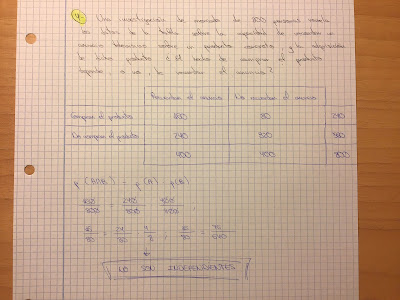 4. Una investigación de mercado de 800 personas revela
los datos de la tabla sobre la capacidad de recordar un
anuncio televisivo sobre un producto concreto, y la adquisición
de dicho producto. ¿El hecho de comprar el producto
depende o no, de recordar el anuncio?
Recuerdan el anuncio No recuerdan el anuncio
Compran el producto 160 80 240
No compran el producto 240 320 560
400 400 800
p (A∩B) = p(A) · p(B)
NO SON INDEPENDIENTES